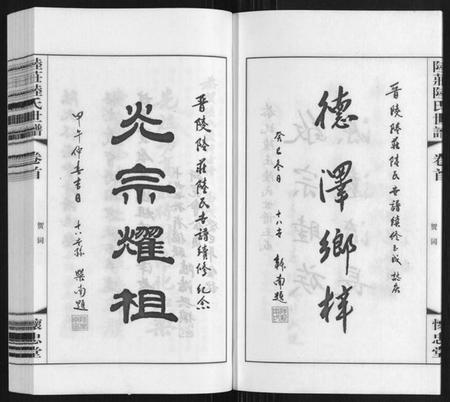 陸莊陸氏世譜
卷首
賀詞
懷忠堂
晋陵陸莊陸氏世譜續修告成 誌庆
德澤鄉梓
癸巳冬月 十八世
南題
晋陵陸莊陸氏世譜續修 纪念
光宗耀祖
甲午仲春吉日 十八世孫 南題
陸莊陸氏世譜
卷首
賀詞
懷忠堂